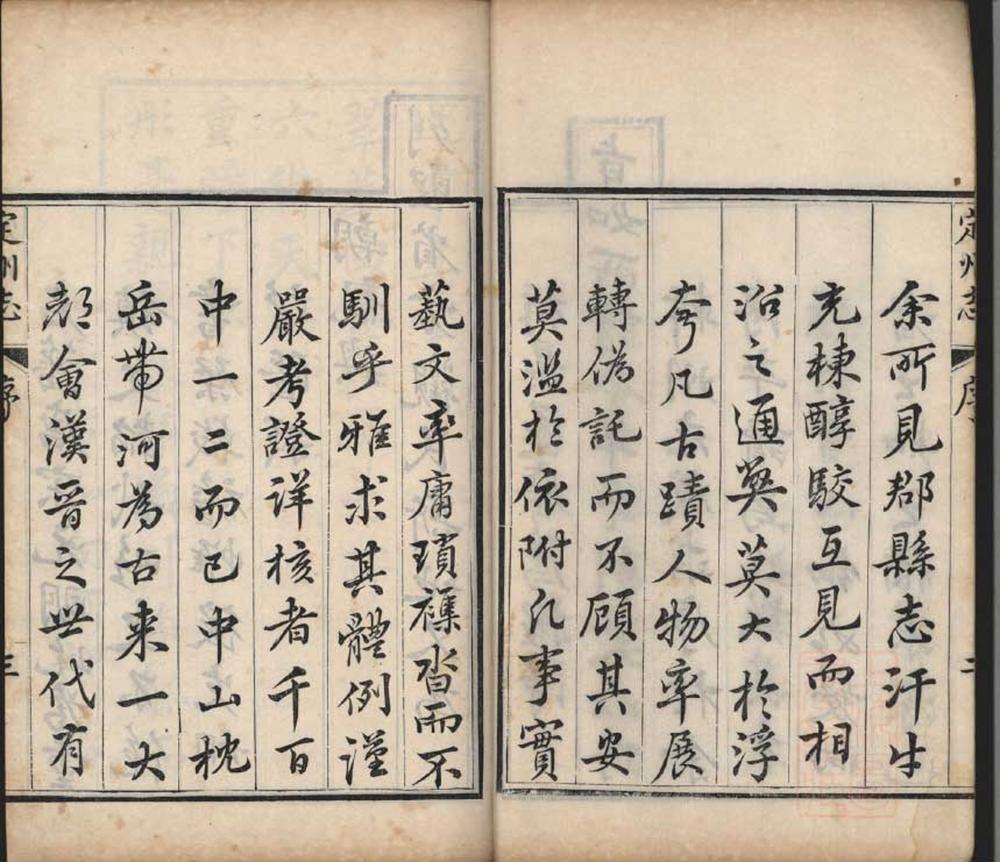 定州志
序
二
余所見郡縣志汗牛
充棟醇駁互見而相
沿之通獘莫大於浮
夸凡古蹟人物率展
轉偽託而不顧其安
莫濫於依附凡事實
藝文率庸瑣襍沓而不
馴乎雅求其體例謹
嚴考證詳核者千百
中一二而已中山枕
岳帶河為古来一大
都會漢晉之世代有
定州志
序
三